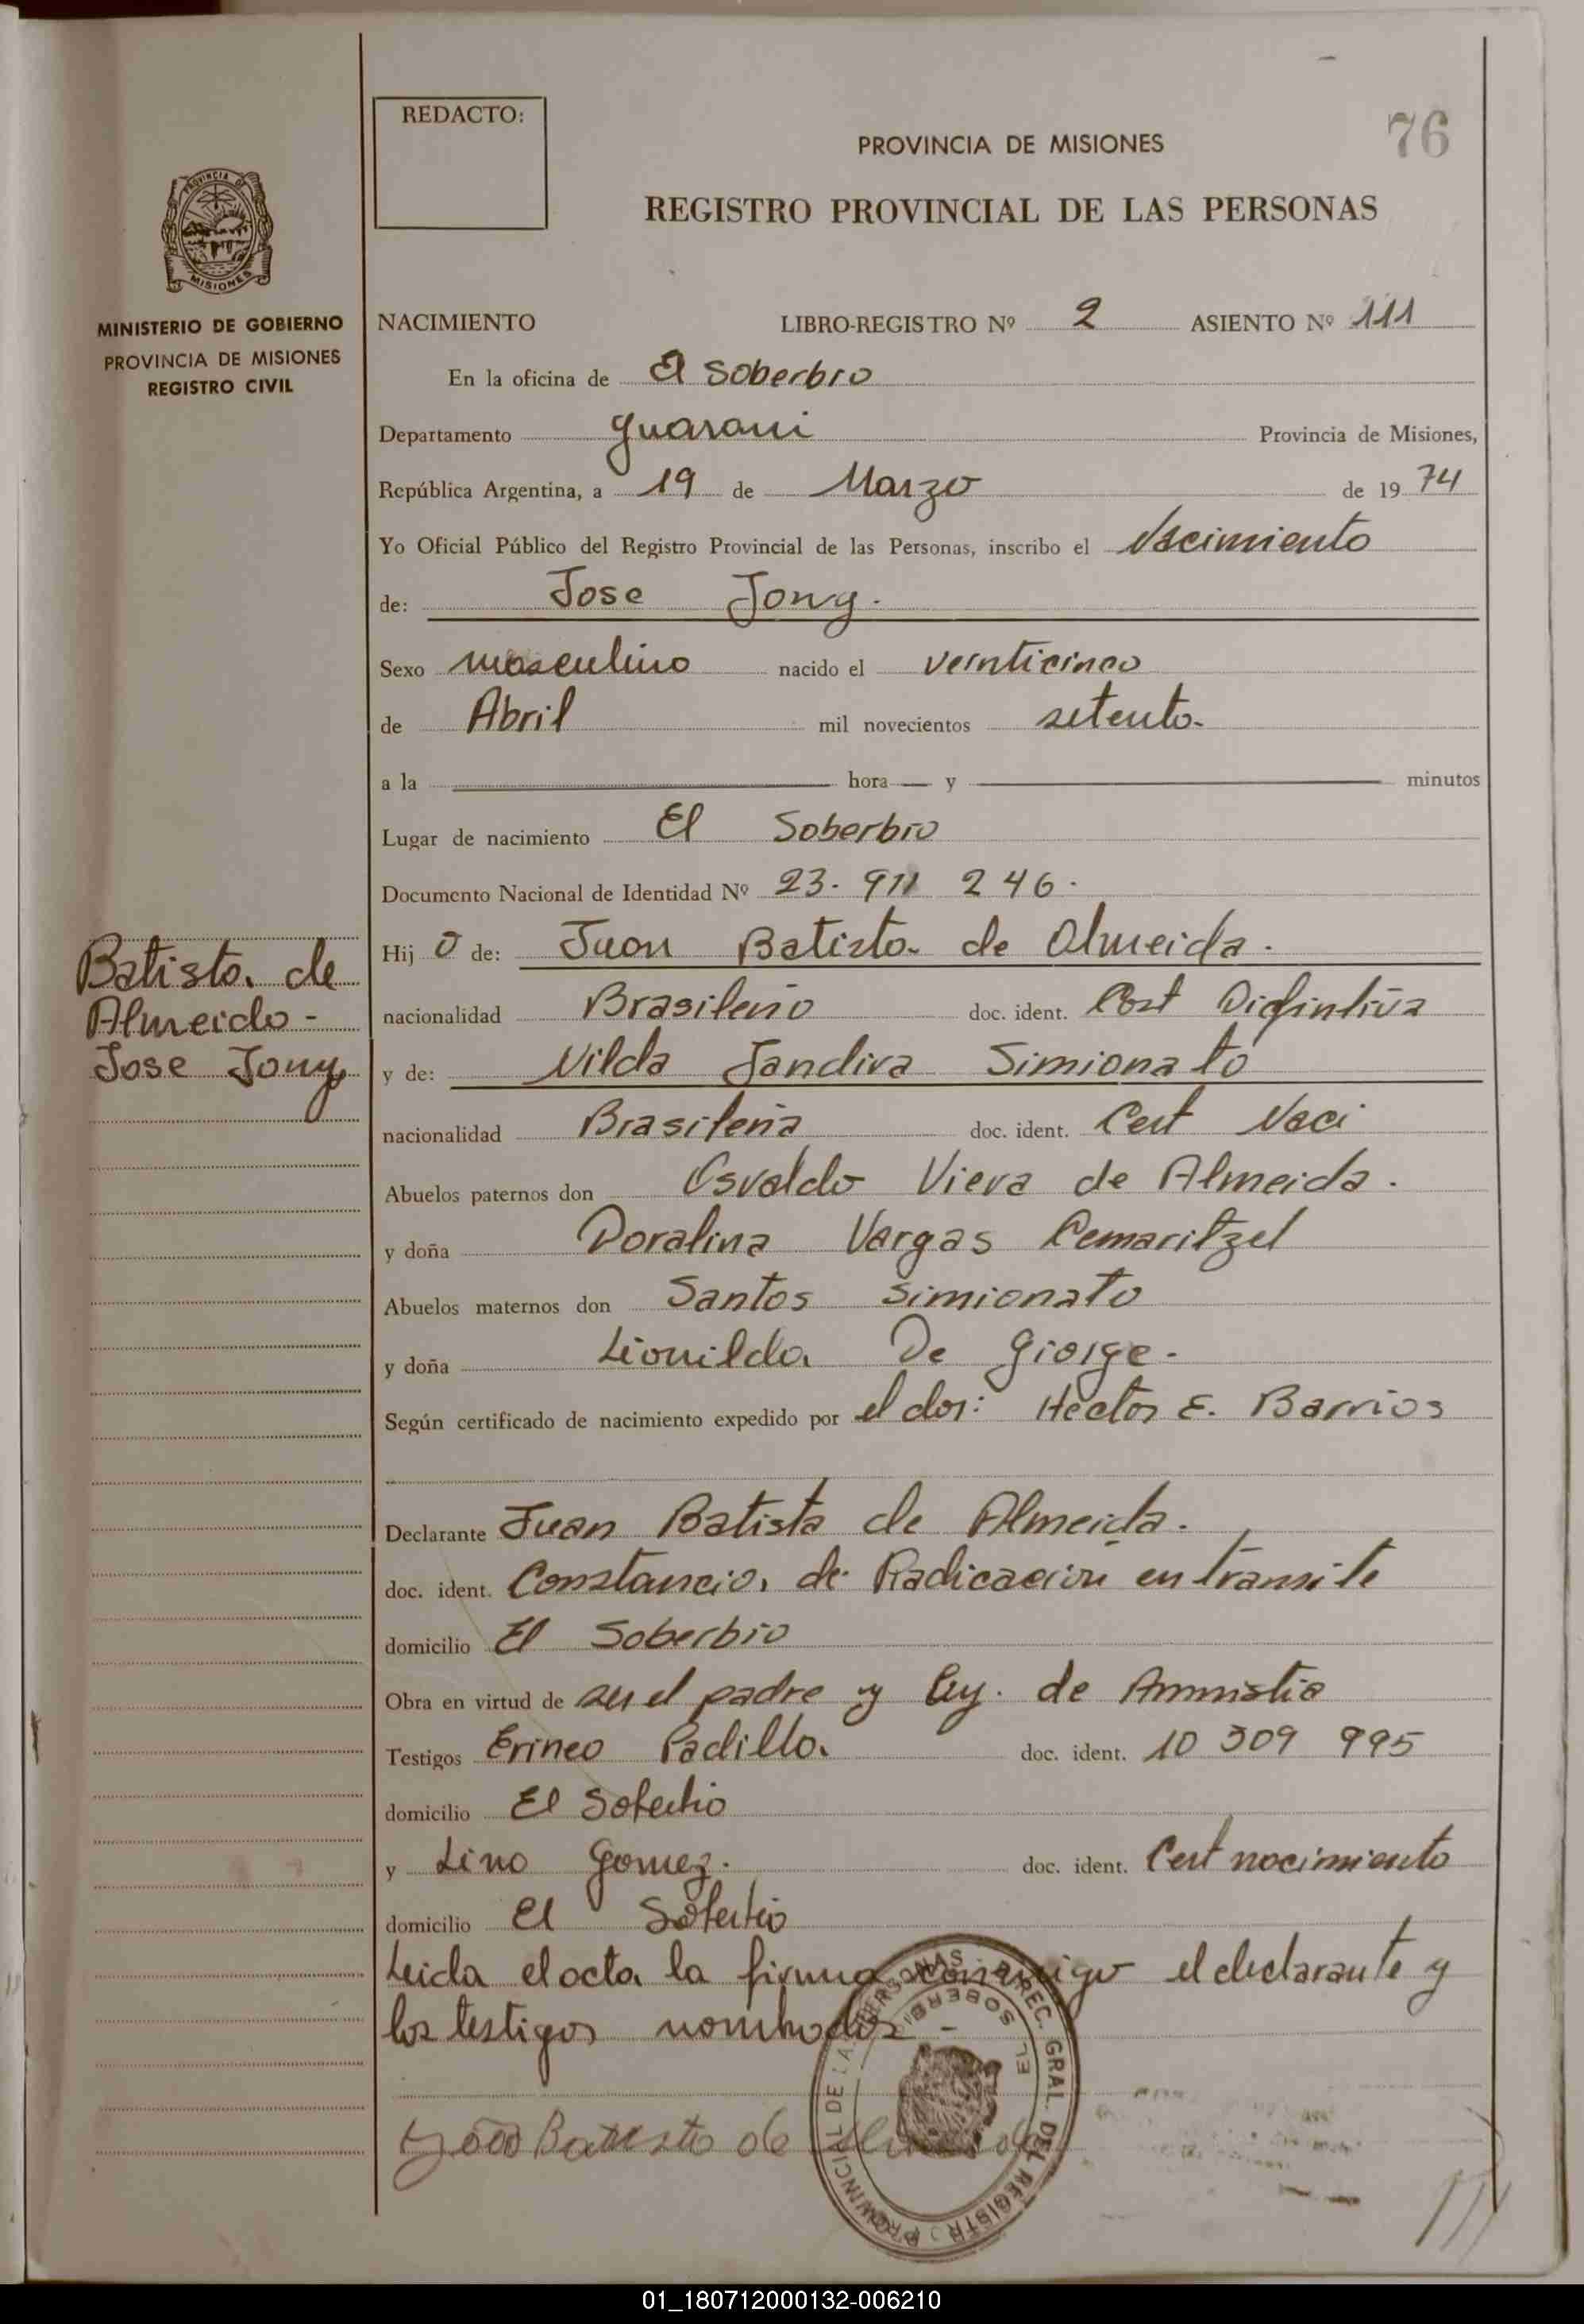 REDACTO:
76
PROVINCIA DE MISIONES
REGISTRO PROVINCIAL DE LAS PERSONAS
PROVINCIA DE
MISIONES
MINISTERIO DE GOBIERNO
PROVINCIA DE MISIONES
REGISTRO CIVIL
NACIMIENTO LIBRO-REGISTRO Nº 2 ASIENTO Nº 111
En la oficina de El Soberbio
Departamento Guarani Provincia de Misiones,
República Argentina, a 19 de Marzo de 19 74
Yo Oficial Público del Registro Provincial de las Personas, inscribo el Nacimiento
de: Jose Jony.
Sexo masculino nacido el veinticinco
de Abril mil novecientos setenta-
a la hora y minutos
Lugar de nacimiento El Soberbio
Documento Nacional de Identidad Nº 23. 911 246.
Batista de
Almeida -
Jose Jony
Hij o de: Juan Batista de Almeida.
nacionalidad Brasileño doc. ident.
y de: Nilda Jandira Simionato
nacionalidad Brasileña doc. ident. Cert Naci
Abuelos paternos don Osvaldo Viera de Almeida.
y doña Doralina Vargas
Abuelos maternos don Santos Simionato
y doña Lionilda De Giorge.
Según certificado de nacimiento expedido por el dor: Hector E. Barrios
Declarante Juan Batista de Almeida.
doc. ident. Constancia de Radicacion en tramite
domicilio El Soberbio
Obra en virtud de ser el padre y Ley. de Amnistia
Testigos Erineo Padilla doc. ident. 10 309 995
domicilio El Soberbio
y Lino Gomez. doc. ident. Cert nacimiento
domicilio El Soberbio
Leida el acta la firma conmigo el declarante y
los testigos nombrados -
João Batista de Almeida
DIREC. GRAL. DEL REGISTRO PROVINCIAL DE LAS PERSONAS
EL SOBERBIO
01_180712000132-006210